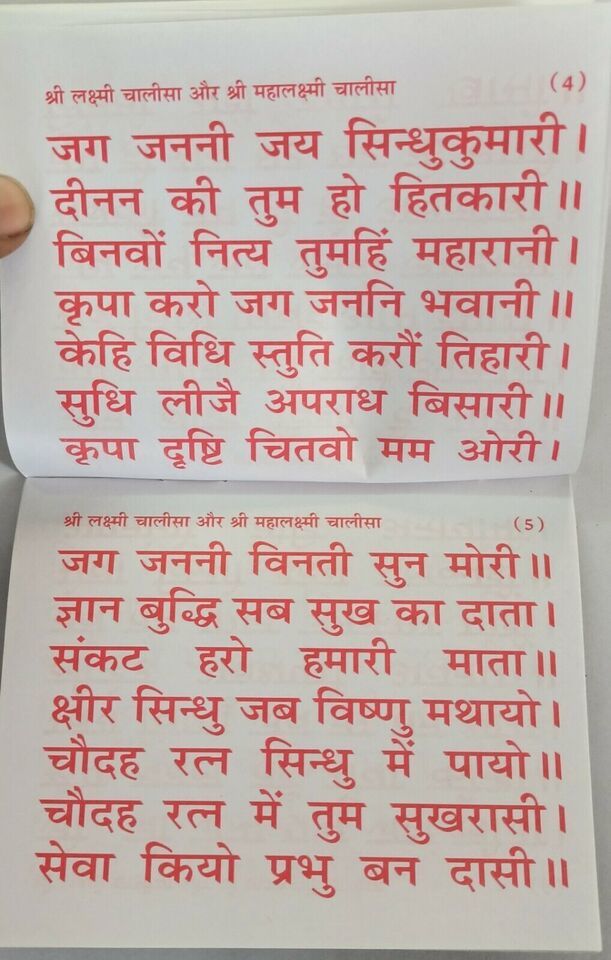 श्री लक्ष्मी चालीसा और श्री महालक्ष्मी चालीसा (4)
जग जननी जय सिन्धुकुमारी।
दीनन की तुम हो हितकारी॥
बिनवों नित्य तुमहिं महारानी।
कृपा करो जग जननि भवानी॥
केहि विधि स्तुति करौं तिहारी।
सुधि लीजै अपराध बिसारी॥
कृपा दृष्टि चितवो मम ओरी।
श्री लक्ष्मी चालीसा और श्री महालक्ष्मी चालीसा (5)
जग जननी विनती सुन मोरी॥
ज्ञान बुद्धि सब सुख का दाता।
संकट हरो हमारी माता॥
क्षीर सिन्धु जब विष्णु मथायो।
चौदह रत्न सिन्धु में पायो॥
चौदह रत्न में तुम सुखरासी।
सेवा कियो प्रभु बन दासी॥